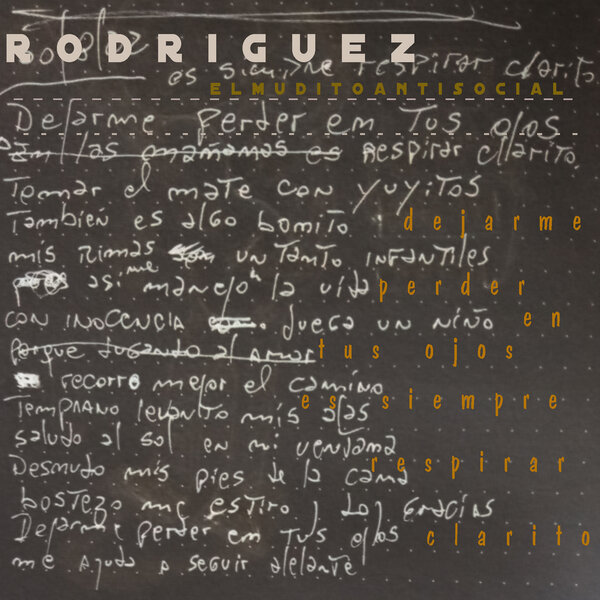 RODRIGUEZ
es siempre respirar clarito
ELMUDITOANTISOCIAL
Dejarme perder en tus ojos
En las mañanas es respirar clarito
Tomar el mate con yuyitos
También es algo bonito
dejarme
mis rimas son un tanto infantiles
así me manejo en la vida
perder
con inocencia juega un niño
en
porque jugando al amor
tus ojos
recorro mejor el camino
es siempre
Temprano levanto mis alas
saludo al sol en mi ventana
Desnudo mis pies de la cama
respirar
bostezo me estiro y doy gracias
Dejarme perder en tus ojos
clarito
me ayuda a seguir adelante